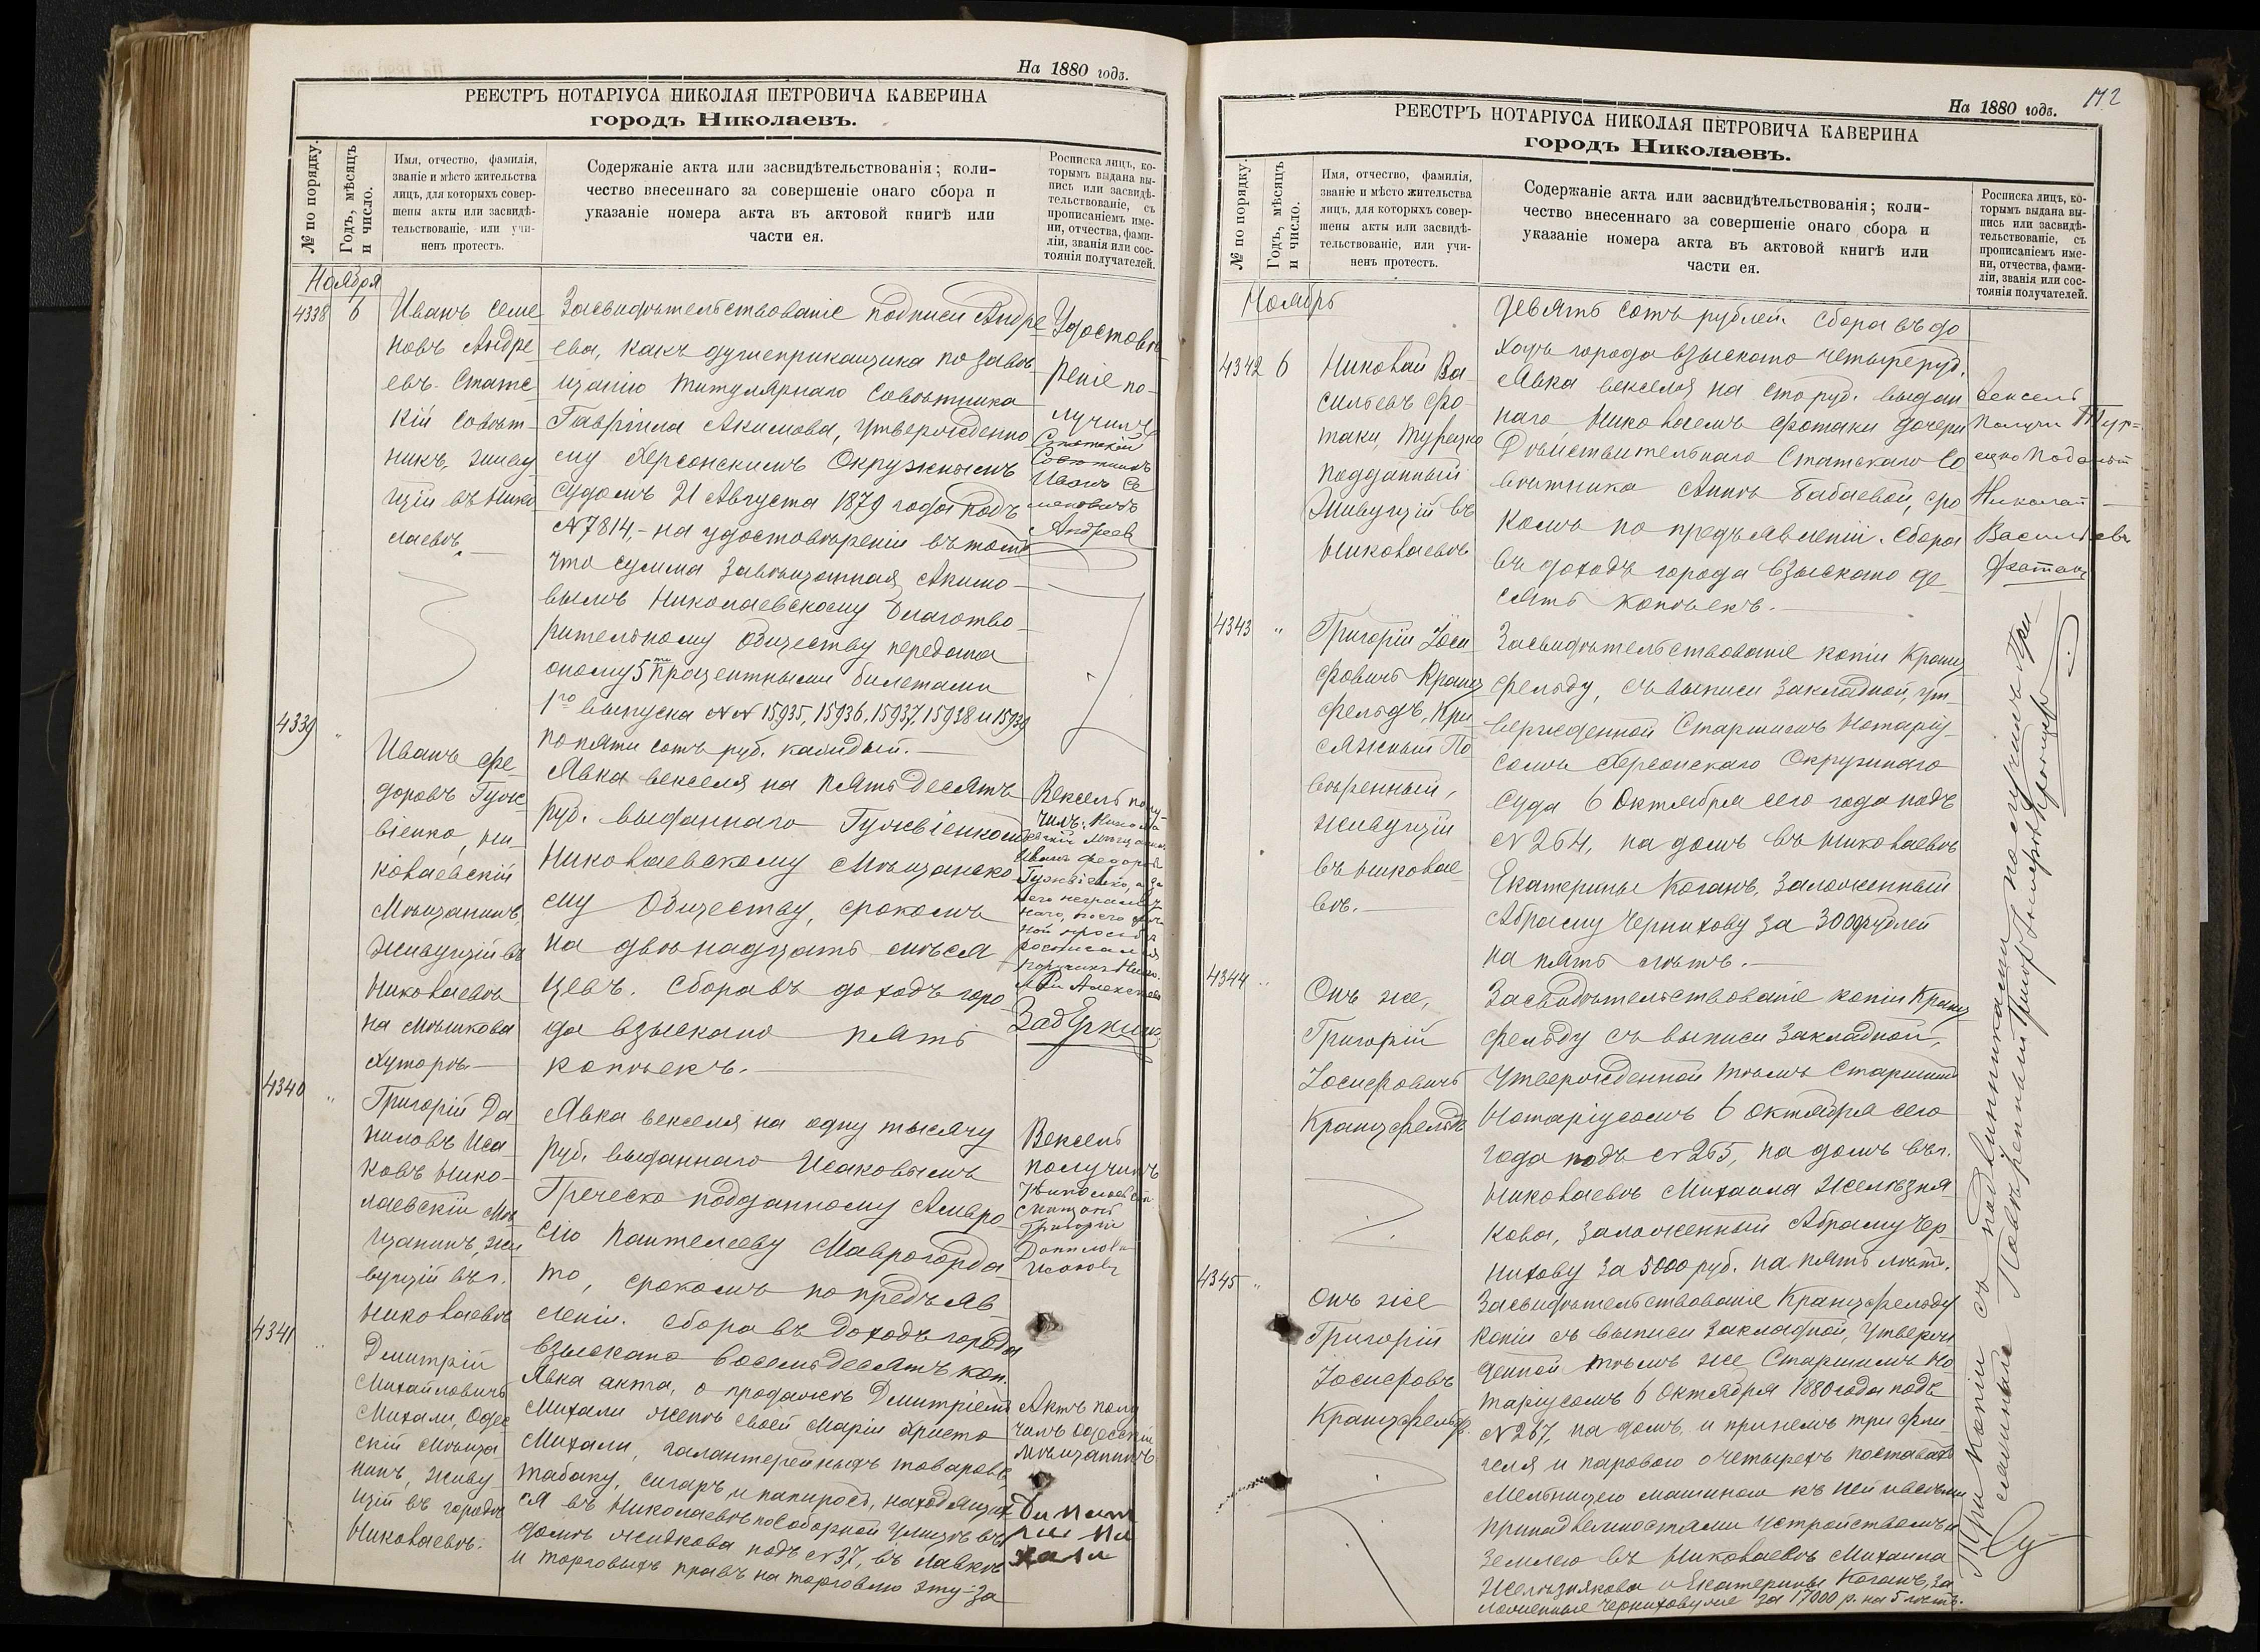 На 1880 годъ.
РЕЕСТРЪ НОТАРІУСА НИКОЛАЯ ПЕТРОВИЧА КАВЕРИНА
городъ Николаевъ.
№ по порядку.
Годъ, мѣсяцъ
и число.
Имя, отчество, фамилія,
званіе и мѣсто жительства
лицъ, для которыхъ совер-
шены акты или засвидѣ-
тельствованіе, или учи-
ненъ протестъ.
Содержаніе акта или засвидѣтельствованія; коли-
чество внесеннаго за совершеніе онаго сбора и
указаніе номера акта въ актовой книгѣ или
части ея.
Росписка лицъ, ко-
торымъ выдана вы-
пись или засвидѣ-
тельствованіе, съ
прописаніемъ име-
ни, отчества, фами-
ліи, званія или сос-
тоянія получателей.
Ноября
4338 6
Иванъ Семе
новъ Андре
евъ. Статс
кій Совѣт-
никъ, живу
щій въ Нико
лаевѣ.
Засвидѣтельствованіе подписи Андре
ева, какъ душеприкащика по завѣ
щанію Титулярнаго Совѣтника
Гавріила Акимова, утвержденно
му Херсонскимъ Окружнымъ
Судомъ 21 Августа 1879 года подъ
№ 7814,- на удостовѣреніи въ томъ
что сумма завѣщанная Акимо-
вымъ Николаевскому Благотво-
рительному Обществу передана
оному 5ти процентными билетами
1го выпуска №№ 15935, 15936, 15937, 15938 и 15939
по пяти сотъ руб. каждый.
Удостовѣ
реніе по-
лучилъ
Статскій
Совѣтникъ
Иванъ Се
меновичъ
Андреев
4339 "
Иванъ Фе-
доровъ Гуж
віенко, Ни-
колаевскій
Мѣщанинъ,
живущій въ
Николаевѣ
на Мѣшкова
Хуторѣ.
Явка векселя на пятьдесятъ
руб. выданнаго Гужвіенкомъ
Николаевскому Мѣщанско
му Обществу, срокомъ
на двѣнадцать мѣся
цевъ. Сбора въ доходъ горо
да взыскано пять
копѣекъ.
Вексель полу-
чилъ. Никола
евскій мѣщанинъ
Иванъ Федоровъ
Гужвіенко, а за
него неграмот
наго, по его лич
ной просьбѣ
росписался
4340 "
Григорій Да
ниловъ Иса
ковъ Нико-
лаевскій Мѣ
щанинъ, жи
вущій въ г.
Николаевѣ
Явка векселя на одну тысячу
руб. выданнаго Исаковымъ
Греческо подданному Амвро
сію Пантелееву Маврогорда
то, срокомъ по предъяв
ленiи. Сбора въ доходъ города
взыскано восемьдесятъ коп.
Вексель
получилъ
Николаевскій
Мѣщанъ
Григорій
Даниловъ
Исаковъ
4341 "
Дмитрій
Михайловичъ
Михали, Одес
скій Мѣща
нинъ, живу
щій въ городѣ
Николаевѣ.
Явка акта, о продажѣ Дмитріемъ
Михали женѣ своей Маріи Христо
Михали, галантерейныхъ товаровъ
табаку, сигаръ и папиросъ, находящих
ся въ Николаевѣ по Соборной улицѣ въ
домѣ Жидкова подъ № 37, въ лавкѣ
и торговыхъ правъ на торговлю эту- за
Актъ полу
чилъ Одесскій
Мѣщанинъ
Димит
рий Ми
хали
На 1880 годъ. 172
РЕЕСТРЪ НОТАРІУСА НИКОЛАЯ ПЕТРОВИЧА КАВЕРИНА
городъ Николаевъ.
№ по порядку.
Годъ, мѣсяцъ
и число.
Имя, отчество, фамилія,
званіе и мѣсто жительства
лицъ, для которыхъ совер-
шены акты или засвидѣ-
тельствованіе, или учи-
ненъ протестъ.
Содержаніе акта или засвидѣтельствованія; коли-
чество внесеннаго за совершеніе онаго сбора и
указаніе номера акта въ актовой книгѣ или
части ея.
Росписка лицъ, ко-
торымъ выдана вы-
пись или засвидѣ-
тельствованіе, съ
прописаніемъ име-
ни, отчества, фами-
ліи, званія или сос-
тоянія получателей.
Ноябрь
девять сотъ рублей. Сбора въ до
ходъ города взыскано четыре руб.
4342 6
Николай Ва-
сильевъ Фо-
таки, Турецко
подданный
Живущій въ
Николаевѣ
Явка векселя на сто руб. выдан
наго Николаемъ Фотаки дочери
Дѣйствительнаго Статскаго Со
вѣтника Аннѣ Бабаевой, сро
комъ по предъявленіи. Сбора
въ доходъ города взыскано де-
сять копѣекъ.
Вексель
получи Тур=
ецко Поданый
Николай
Васильевъ
Фотаки
4343 "
Григорій Іоси
фовичъ Кранц
фельдъ, При
сяжный По
вѣренный,
живущій
въ Николае-
вѣ.
Засвидѣтельствованіе копіи Кранц
фельду, съ выписи закладной, ут-
вержденной Старшимъ Нотаріу-
сомъ Херсонскаго Окружнаго
Суда 6 Октября сего года подъ
№ 264, на домъ въ Николаевѣ
Екатерины Коганъ, заложенный
Абраму Черникову за 3000 рублей
на пять лѣтъ.
4344 "
Онъ же,
Григорій
Іосифовичъ
Кранцфельдъ
Засвидѣтельствованіе копіи Кранц
фельду съ выписи закладной,
утвержденной тѣмъ Старшимъ
Нотаріусомъ 6 Октября сего
года подъ № 265, на домъ въ г.
Николаевѣ Михаила Желѣзня
кова, заложенный Абраму Чер
никову за 5000 руб. на пять лѣтъ.
4345 "
Онъ же
Григорій
Іосифовъ
Кранцфельдъ.
Засвидѣтельствованіе Кранцфельду
копіи съ выписи закладной, утверж
денной тѣмъ же Старшимъ Но
таріусомъ 6 Октября 1880 года подъ
№ 267, на домъ, и при немъ три фли-
геля и паровою о четырехъ поставахъ
мельницею машиною къ ней и всѣми
принадлежностями устройствомъ и
землею въ Николаевѣ Михаила
Желѣзнякова и Екатерины Коганъ, за
ложенные Черникову же за 17000 р. на 5 лѣтъ.
Три копіи съ подлинниками получилъ При
сяжный Повѣренный Григор